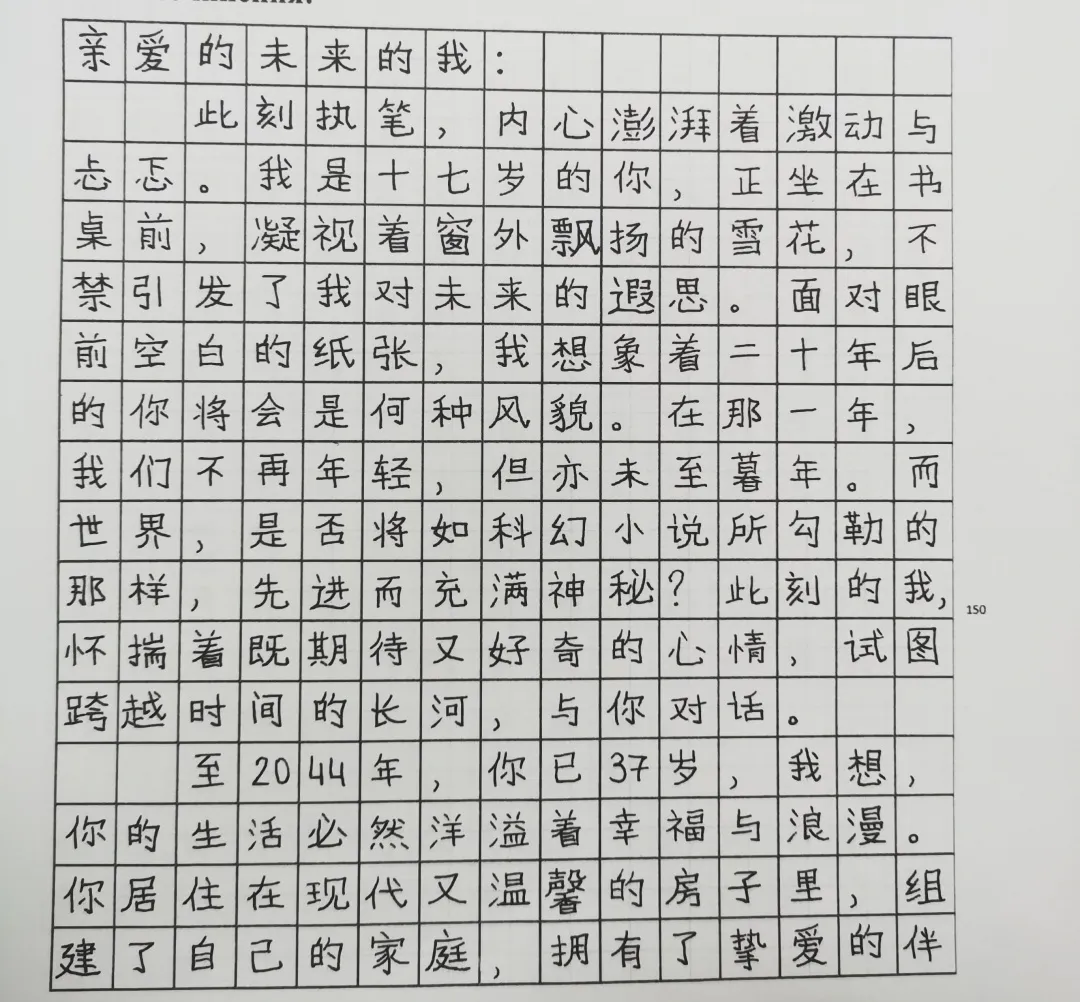 亲爱的未来的我：
此刻执笔，内心澎湃着激动与
忐忑。我是十七岁的你，正坐在书
桌前，凝视着窗外飘扬的雪花，不
禁引发了我对未来的遐思。面对眼
前空白的纸张，我想象着二十年后
的你将会是何种风貌。在那一年，
我们不再年轻，但亦未至暮年。而
世界，是否将如科幻小说所勾勒的
那样，先进而充满神秘？此刻的我，
150
怀揣着既期待又好奇的心情，试图
跨越时间的长河，与你对话。
至2044年，你已37岁，我想，
你的生活必然洋溢着幸福与浪漫。
你居住在现代又温馨的房子里，组
建了自己的家庭，拥有了挚爱的伴